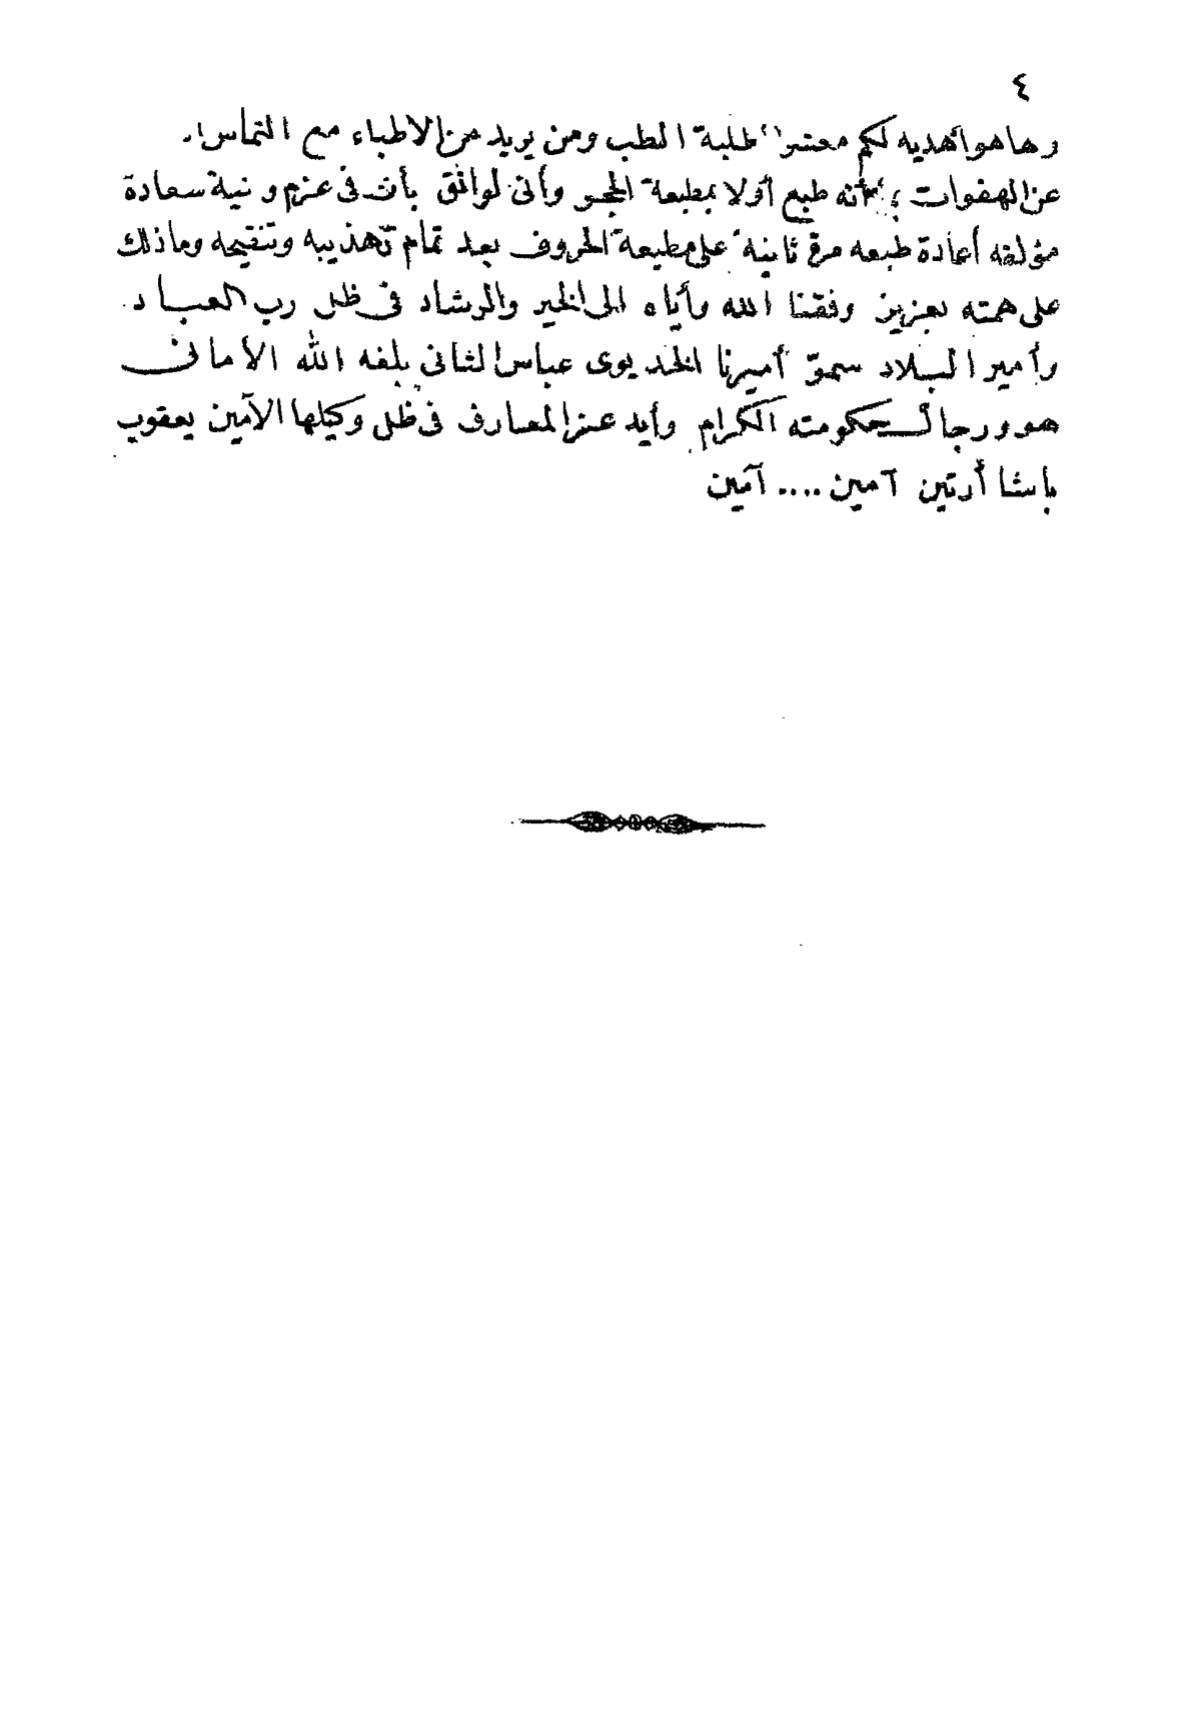 ٤
وها هو أهديه لكم معشر طلبة الطب ومن يريد من الاطباء مع التماس
عن الهفوات أنه طبع أولا بمطبعة الحجر وأنى لواثق بأن فى عزم ونية سعادة
مؤلفه أعادة طبعه مرة ثانية على مطبعة الحروف بعد تمام تهذيبه وتنقيحه وماذلك
على همته بعزيز وفقنا الله وأياه الى الخير والرشاد فى ظل رب العباد
وأمير البلاد سموّ أميرنا الخديوى عباس الثانى بلغه الله الأمانى
هو ورجال حكومته الكرام وأيد عز المعارف فى ظل وكيلها الآمين يعقوب
باشا أرتين آمين .... آمين